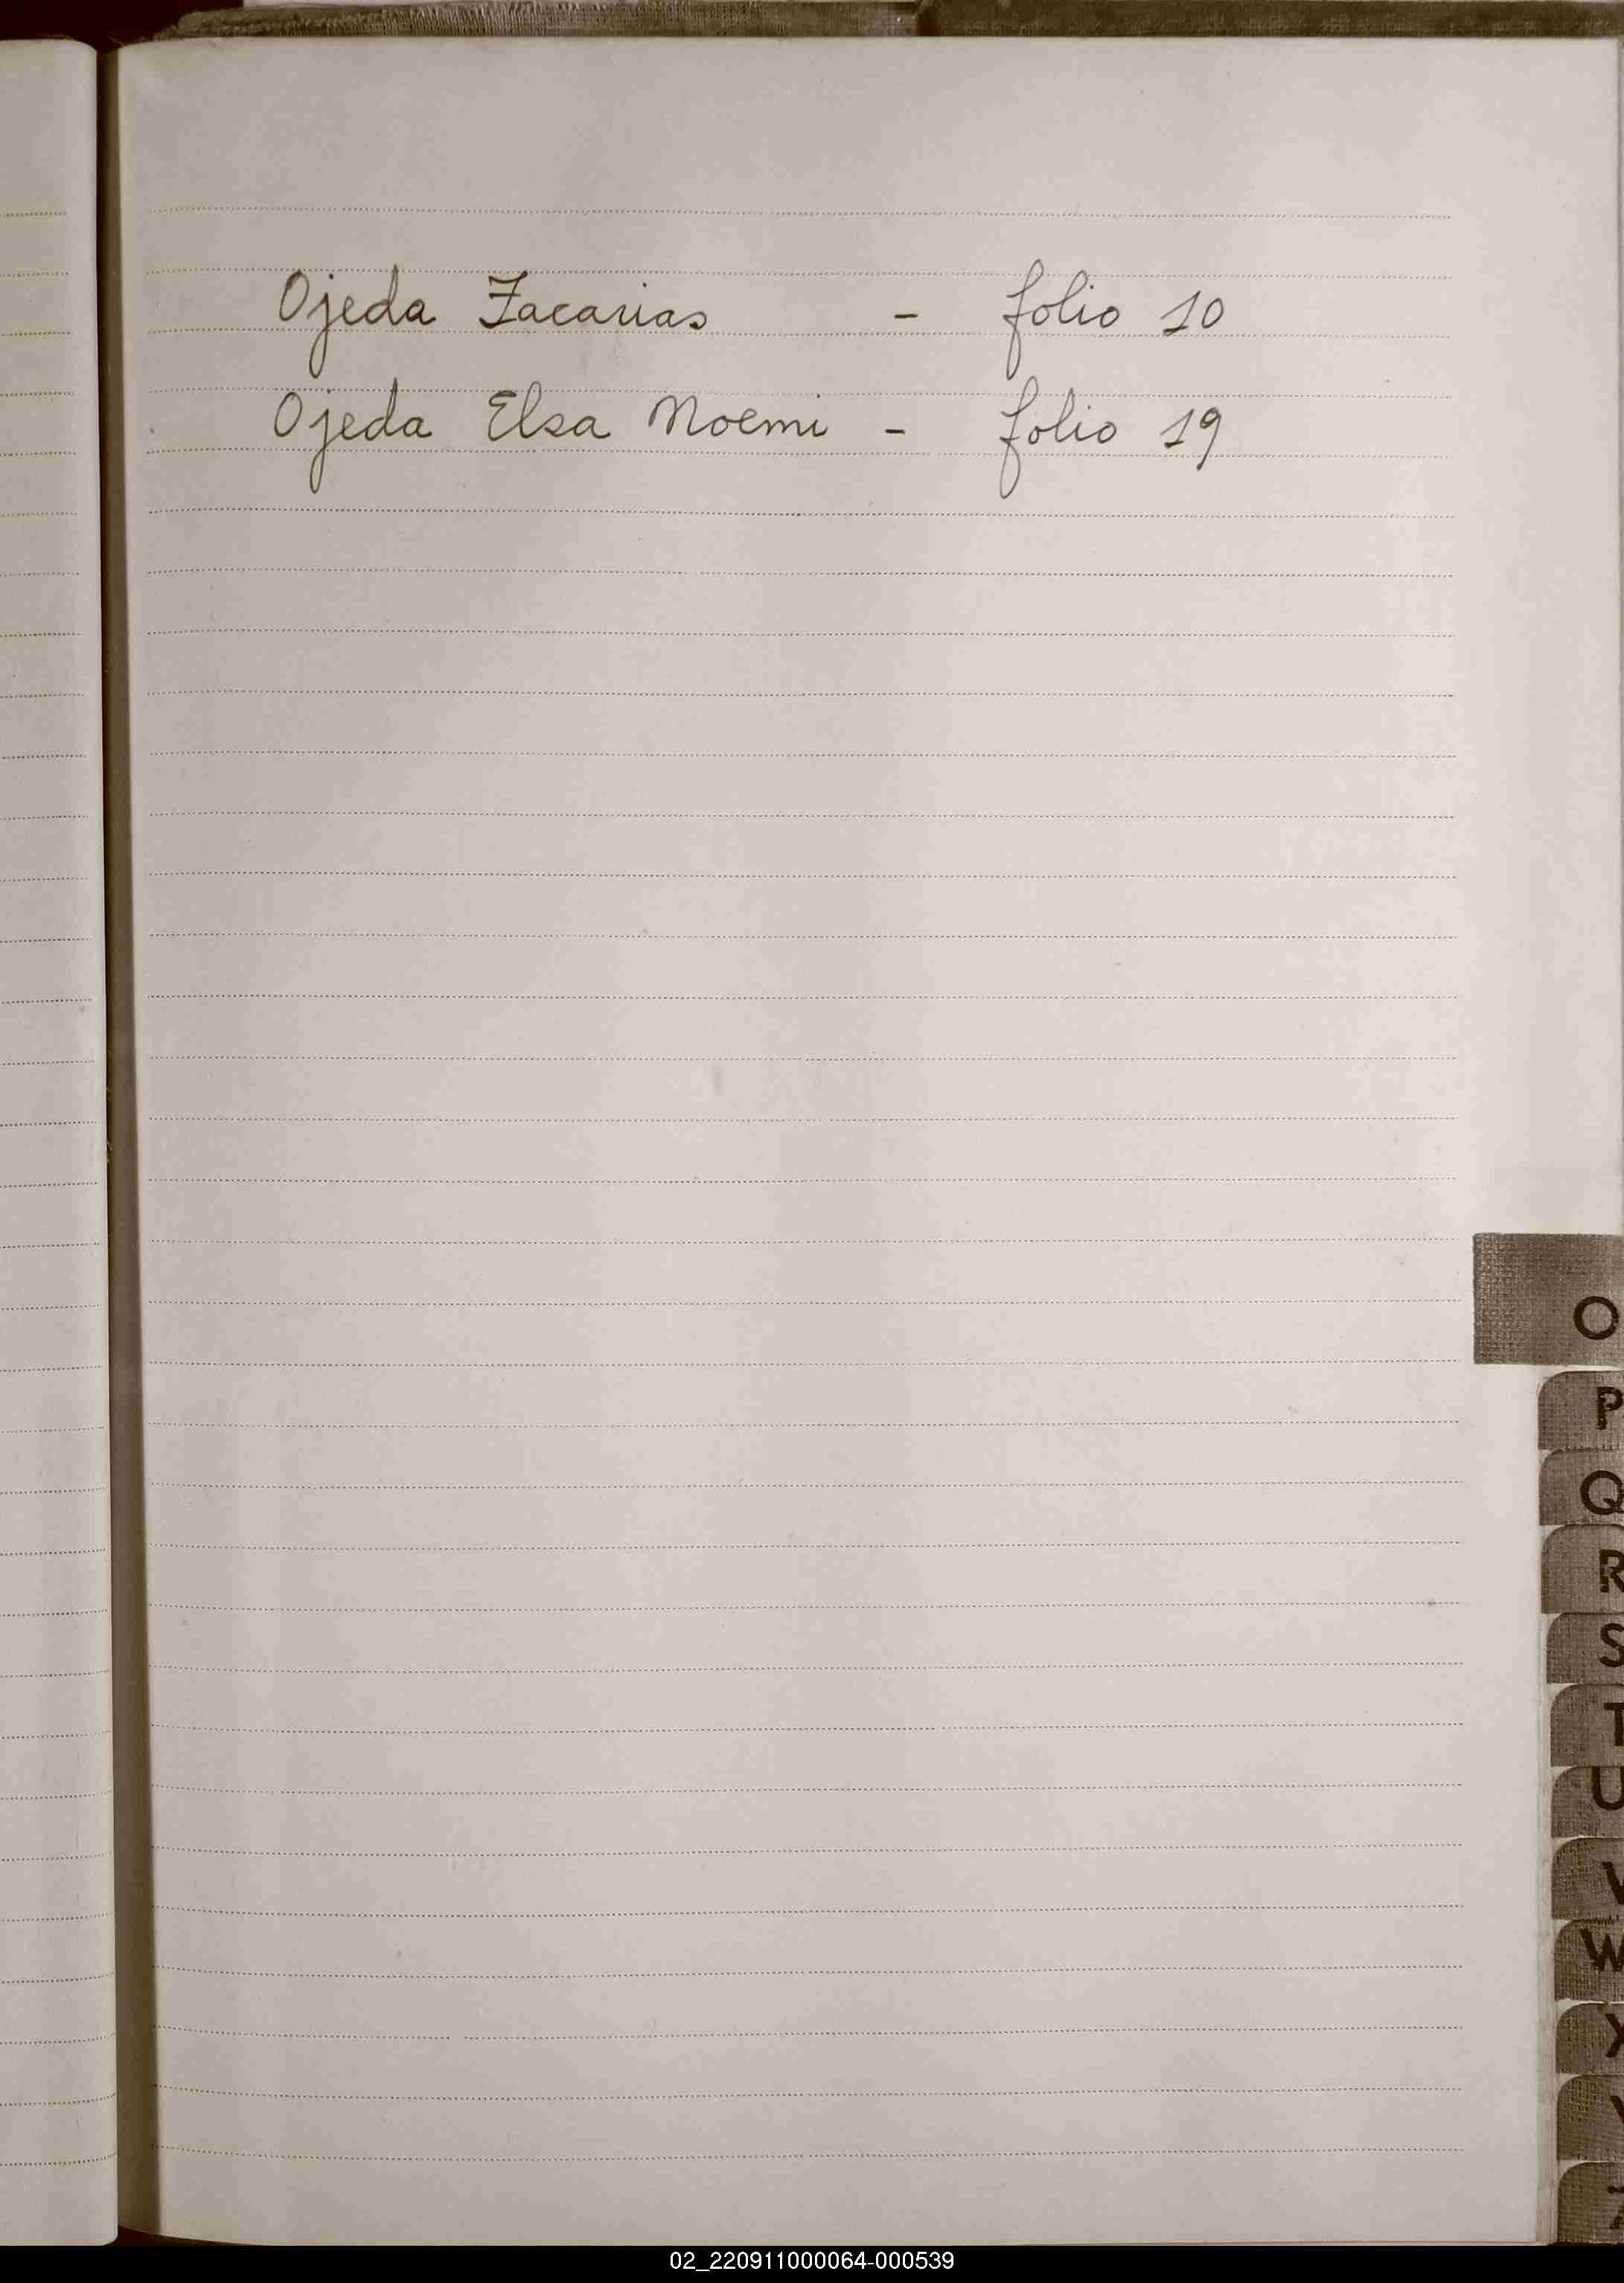 Ojeda Zacarias - folio 10
Ojeda Elsa Noemi - folio 19
O
P
Q
R
S
T
U
V
W
X
Y
Z
02_220911000064-000539